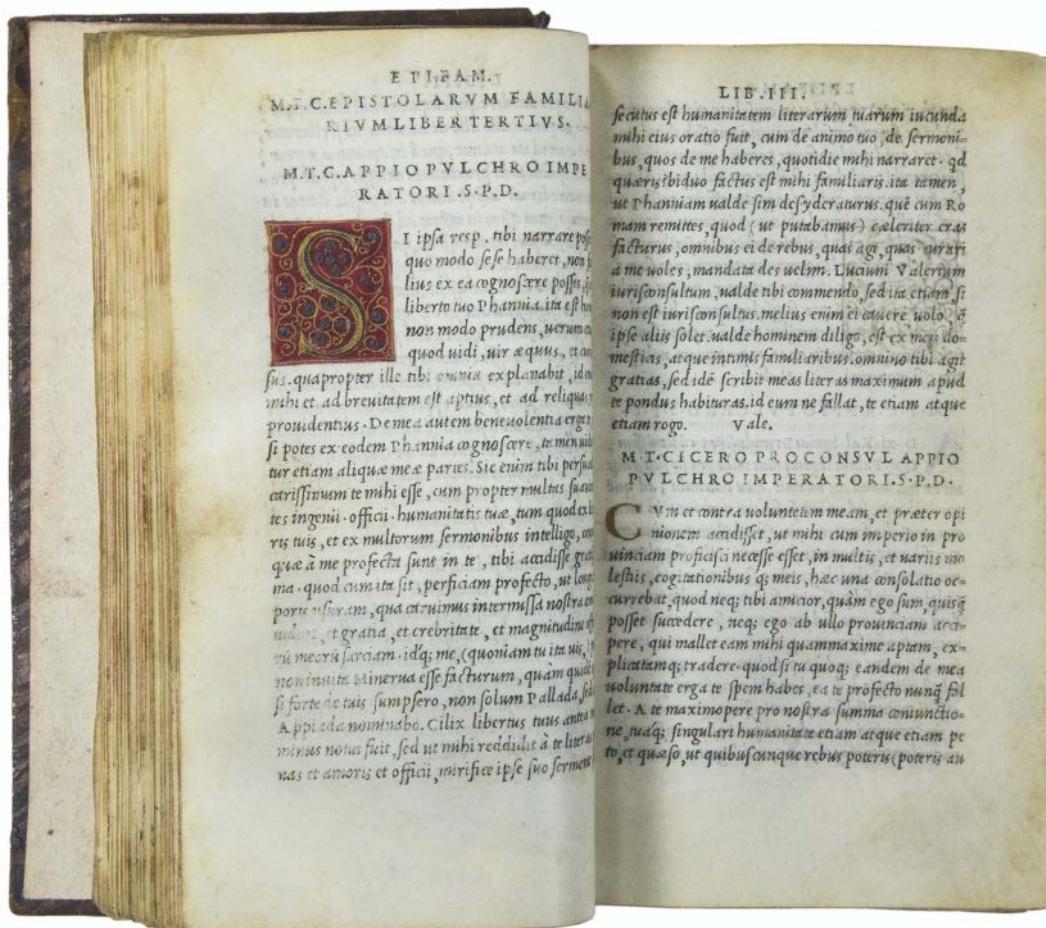 EPI.FAM.
M.T.C.EPISTOLARVM FAMILIA
RIVM LIBER TERTIVS.
M.T.C.APPIO PVLCHRO IMPE
RATORI.S.P.D.
S I ipsa resp. tibi narrare
quo modo sese haberet, non
lius ex ea cognoscere posses,
liberto tuo Phannia. ita est
non modo prudens, uerum
quod uidi, uir æquus, et
sus. quapropter ille tibi omnia explanabit, id
mihi et ad breuitatem est aptius, et ad reliqua
prouidentius. De mea autem beneuolentia erga
si potes ex eodem Phannia cognoscere, tamen
tur etiam aliquæ meæ partes. Sic enim tibi
carissimum te mihi esse, cum propter multas
tes ingenii. officii. humanitatis tuæ, tum quod
ris tuis, et ex multorum sermonibus intelligo,
quæ à me profecta sunt in te, tibi accidisse
ma. quod cum ita sit, perficiam profecto, ut
poris usuram, qua caruimus intermissa nostra
et gratia, et crebritate, et magnitudine
rū meorū sarciam. idq; me, (quoniam tu ita uis,)
non inuita Minerua esse facturum, quàm
si forte de tuis sumpsero, non solum Pallada, sed
Appiada nominabo. Cilix libertus tuus antea
minus notus fuit, sed ut mihi reddidit à te literas
nas et amoris et officii, mirifice ipse suo
LIB.III.
secutus est humanitatem literarum tuarum iucunda
mihi eius oratio fuit, cum de animo tuo, de sermoni=
bus, quos de me haberes, quotidie mihi narraret. qd
quæris? biduo factus est mihi familiaris. ita tamen,
ut Phanniam ualde sim desyderaturus. quē cum Ro
mam remittes, quod (ut putabamus) cæleriter eras
facturus, omnibus ei de rebus, quas agi, quas curari
a me uoles, mandata des uelim. Lucium Valerium
iurisconsultum, ualde tibi commendo, sed ita etiam, si
non est iurisconsultus. melius enim ei cauere uolo, q̄
ipse aliis solet. ualde hominem diligo, est ex meis do=
mesticis, atque intimis familiaribus. omnino tibi agit
gratias, sed idē scribit meas literas maximum apud
te pondus habituras. id eum ne fallat, te etiam atque
etiam rogo. Vale.
M.T.CICERO PROCONSVL APPIO
PVLCHRO IMPERATORI.S.P.D.
C Vm et contra uoluntatem meam, et præter opi
nionem accidisset, ut mihi cum imperio in pro
uinciam proficisci necesse esset, in multis, et uariis mo
lestiis, cogitationibusq; meis, hæc una consolatio oc=
currebat, quod neq; tibi amicior, quàm ego sum, quisq̄
posset succedere, neq; ego ab ullo prouinciam acci=
pere, qui mallet eam mihi quammaxime aptam, ex=
plicatamq; tradere. quod si tu quoq; eandem de mea
uoluntate erga te spem habes, ea te profecto nunq̄ fal
let. A te maximopere pro nostra summa coniunctio=
ne, tuaq; singulari humanitate etiam atque etiam pe
to, et quæso, ut quibuscunque rebus poteris (poteris au